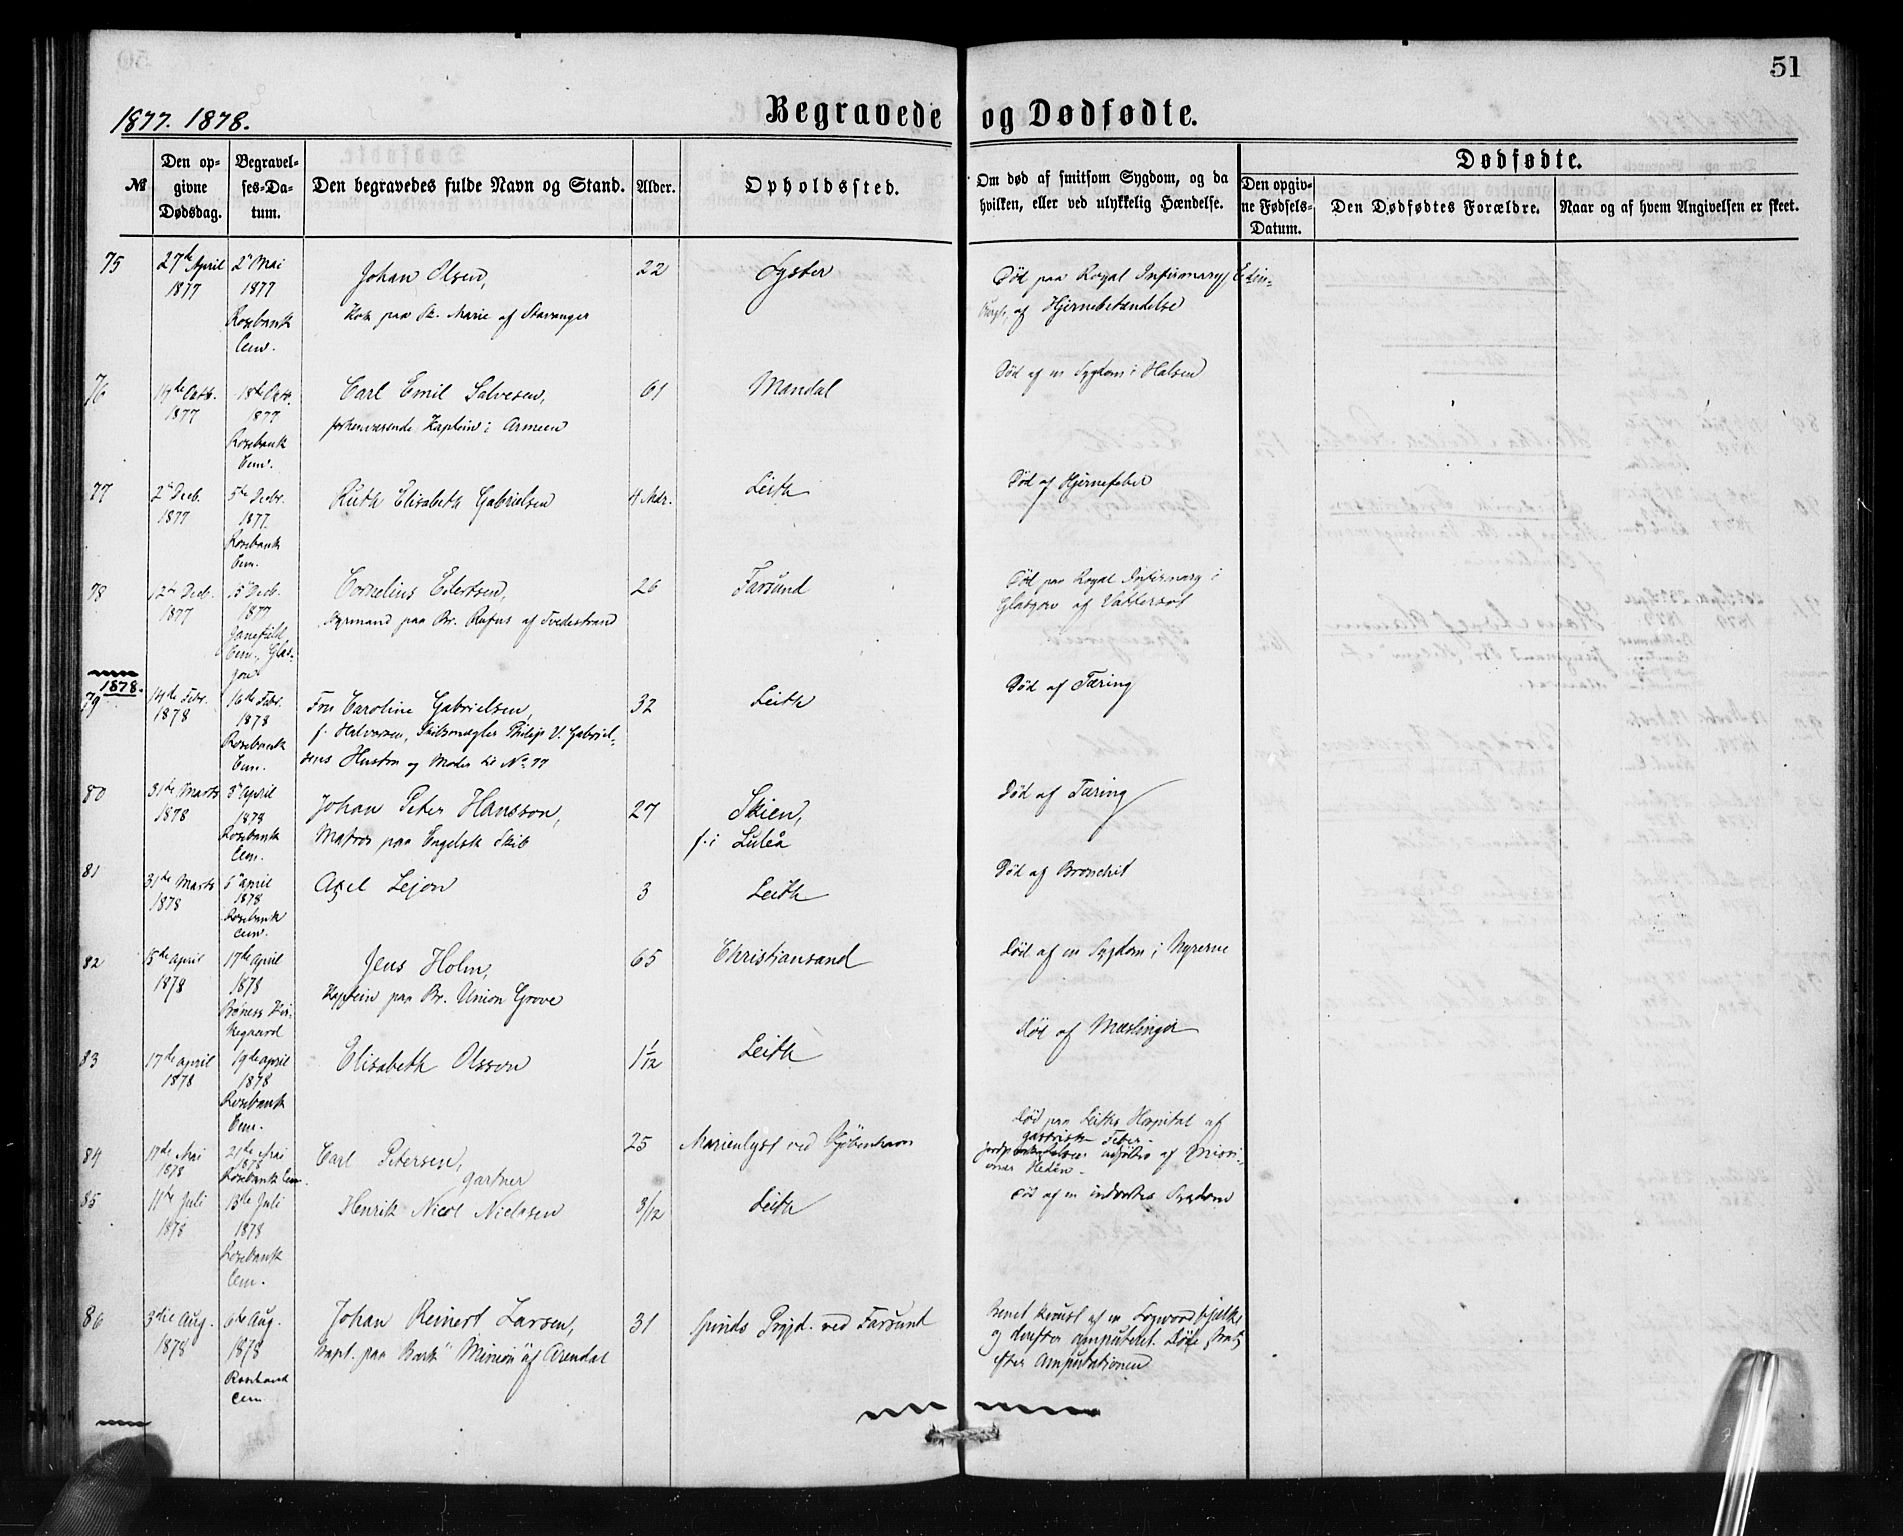 51
1877. 1878.
Begravede og Dødfødte.
№
Den opgivne Dødsdag.
Begravelses-Datum.
Den begravedes fulde Navn og Stand.
Alder.
Opholdssted.
Om død af smitsom Sygdom, og da hvilken, eller ved ulykkelig Hændelse.
Dødfødte.
Den opgivne Fødsels-Datum.
Den Dødfødtes Forældre.
Naar og af hvem Angivelsen er skeet.
75
27de April 1877
2n Mai 1877 Rosebank Cem.
Johan Olsen,
Kok paa Sk. Marie af Stavanger
22
Lyster
Død paa Royal Infirmary, Edin-
burgh, af Hjernebetændelse
76
17de Octb. 1877
18de Octr. 1877 Rosebank Cem.
Carl Emil Salvesen,
forhenværende Kaptein i Armeen
61
Mandal
Død af en Sygdom i Halsen
77
2n Decb. 1877
5te Decbr. 1877 Rosebank Cem.
Ruth Elisabeth Gabrielsen
4 Mdr.
Leith
Død af Hjernefeber
78
12te Decb. 1877
15de Decb. 1877 Janefield Cem., Glas-
gow
Cornelius Eilertsen,
Styrmand paa Br. Rufus af Tvedestrand
26
Farsund
Død paa Royal Infirmary i
Glasgow af Vattersot
1878.
79
14de Febr. 1878
16de Febr. 1878 Rosebank Cem.
Fru Caroline Gabrielsen,
f. Halvorsen, Skibsmægler Philip V. Gabriel-
sens Hustru og Moder til No. 77
32
Leith
Død af Tæring
80
31te Marts 1878
3n April 1878 Rosebank Cem.
Johan Peter Hansson,
Matros paa Engelsk Skib
27
Skien,
f. i Luleå
Død af Tæring
81
31te Marts 1878
5n April 1878 Rosebank Cem.
Axel Lejon
3
Leith
Død af Bronchit
82
15de April 1878
17de April 1878 Bóness Kir-
kegaard
Jens Holm,
Kaptein paa Br. Union Grove
65
Christiansand
Død af en Sygdom i Nyrerne
83
17de April 1878
19de April 1878 Rosebank Cem.
Elisabeth Olsson
1 1/12
Leith
Død af Mæslinger
84
19de Mai 1878
21de Mai 1878 Rosebank Cem.
Carl Petersen,
Gartner
25
Marienlyst ved Kjöbenhavn
Død paa Leiths Hospital af
gastrisk Feber.
af Mission-
ær Hedén.
85
11te Juli 1878
13de Juli 1878 Rosebank Cem.
Henrik Nicol Nielssen
3/12
Leith
Død af en indvortes Sygdom
86
3die Aug. 1878
6te Aug. 1878 Rosebank Cem.
Johan Reinert Larsen,
Kapt. paa Bark "Minion" af Arendal
31
Spinds Prgjd. ved Farsund
Benet knust af en Logwood Bjælke
og derefter amputeret. Døde strax
efter Amputationen